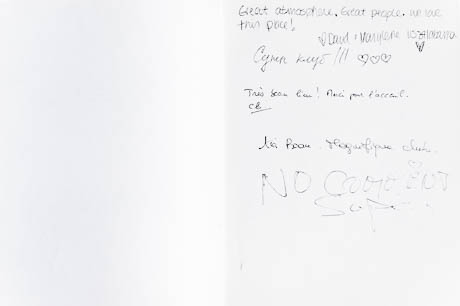 Great atmosphere. Great people. We love
this place!
David & Marylene
Супер клуб!!!
Très beau lieu! Merci pour l'accueil.
Très Beau. Magnifique club.
NO COMMENT
Super